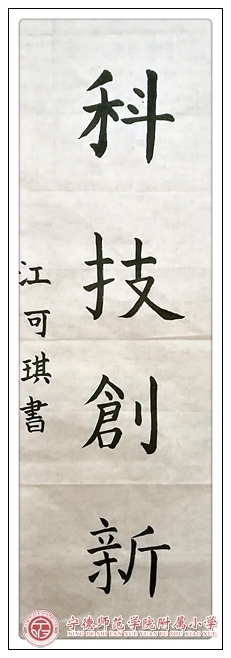 科技創新
江可琪書
宁德师范学院附属小学
NING DE SHI FAN XUE YUAN FU SHU XIAO XUE